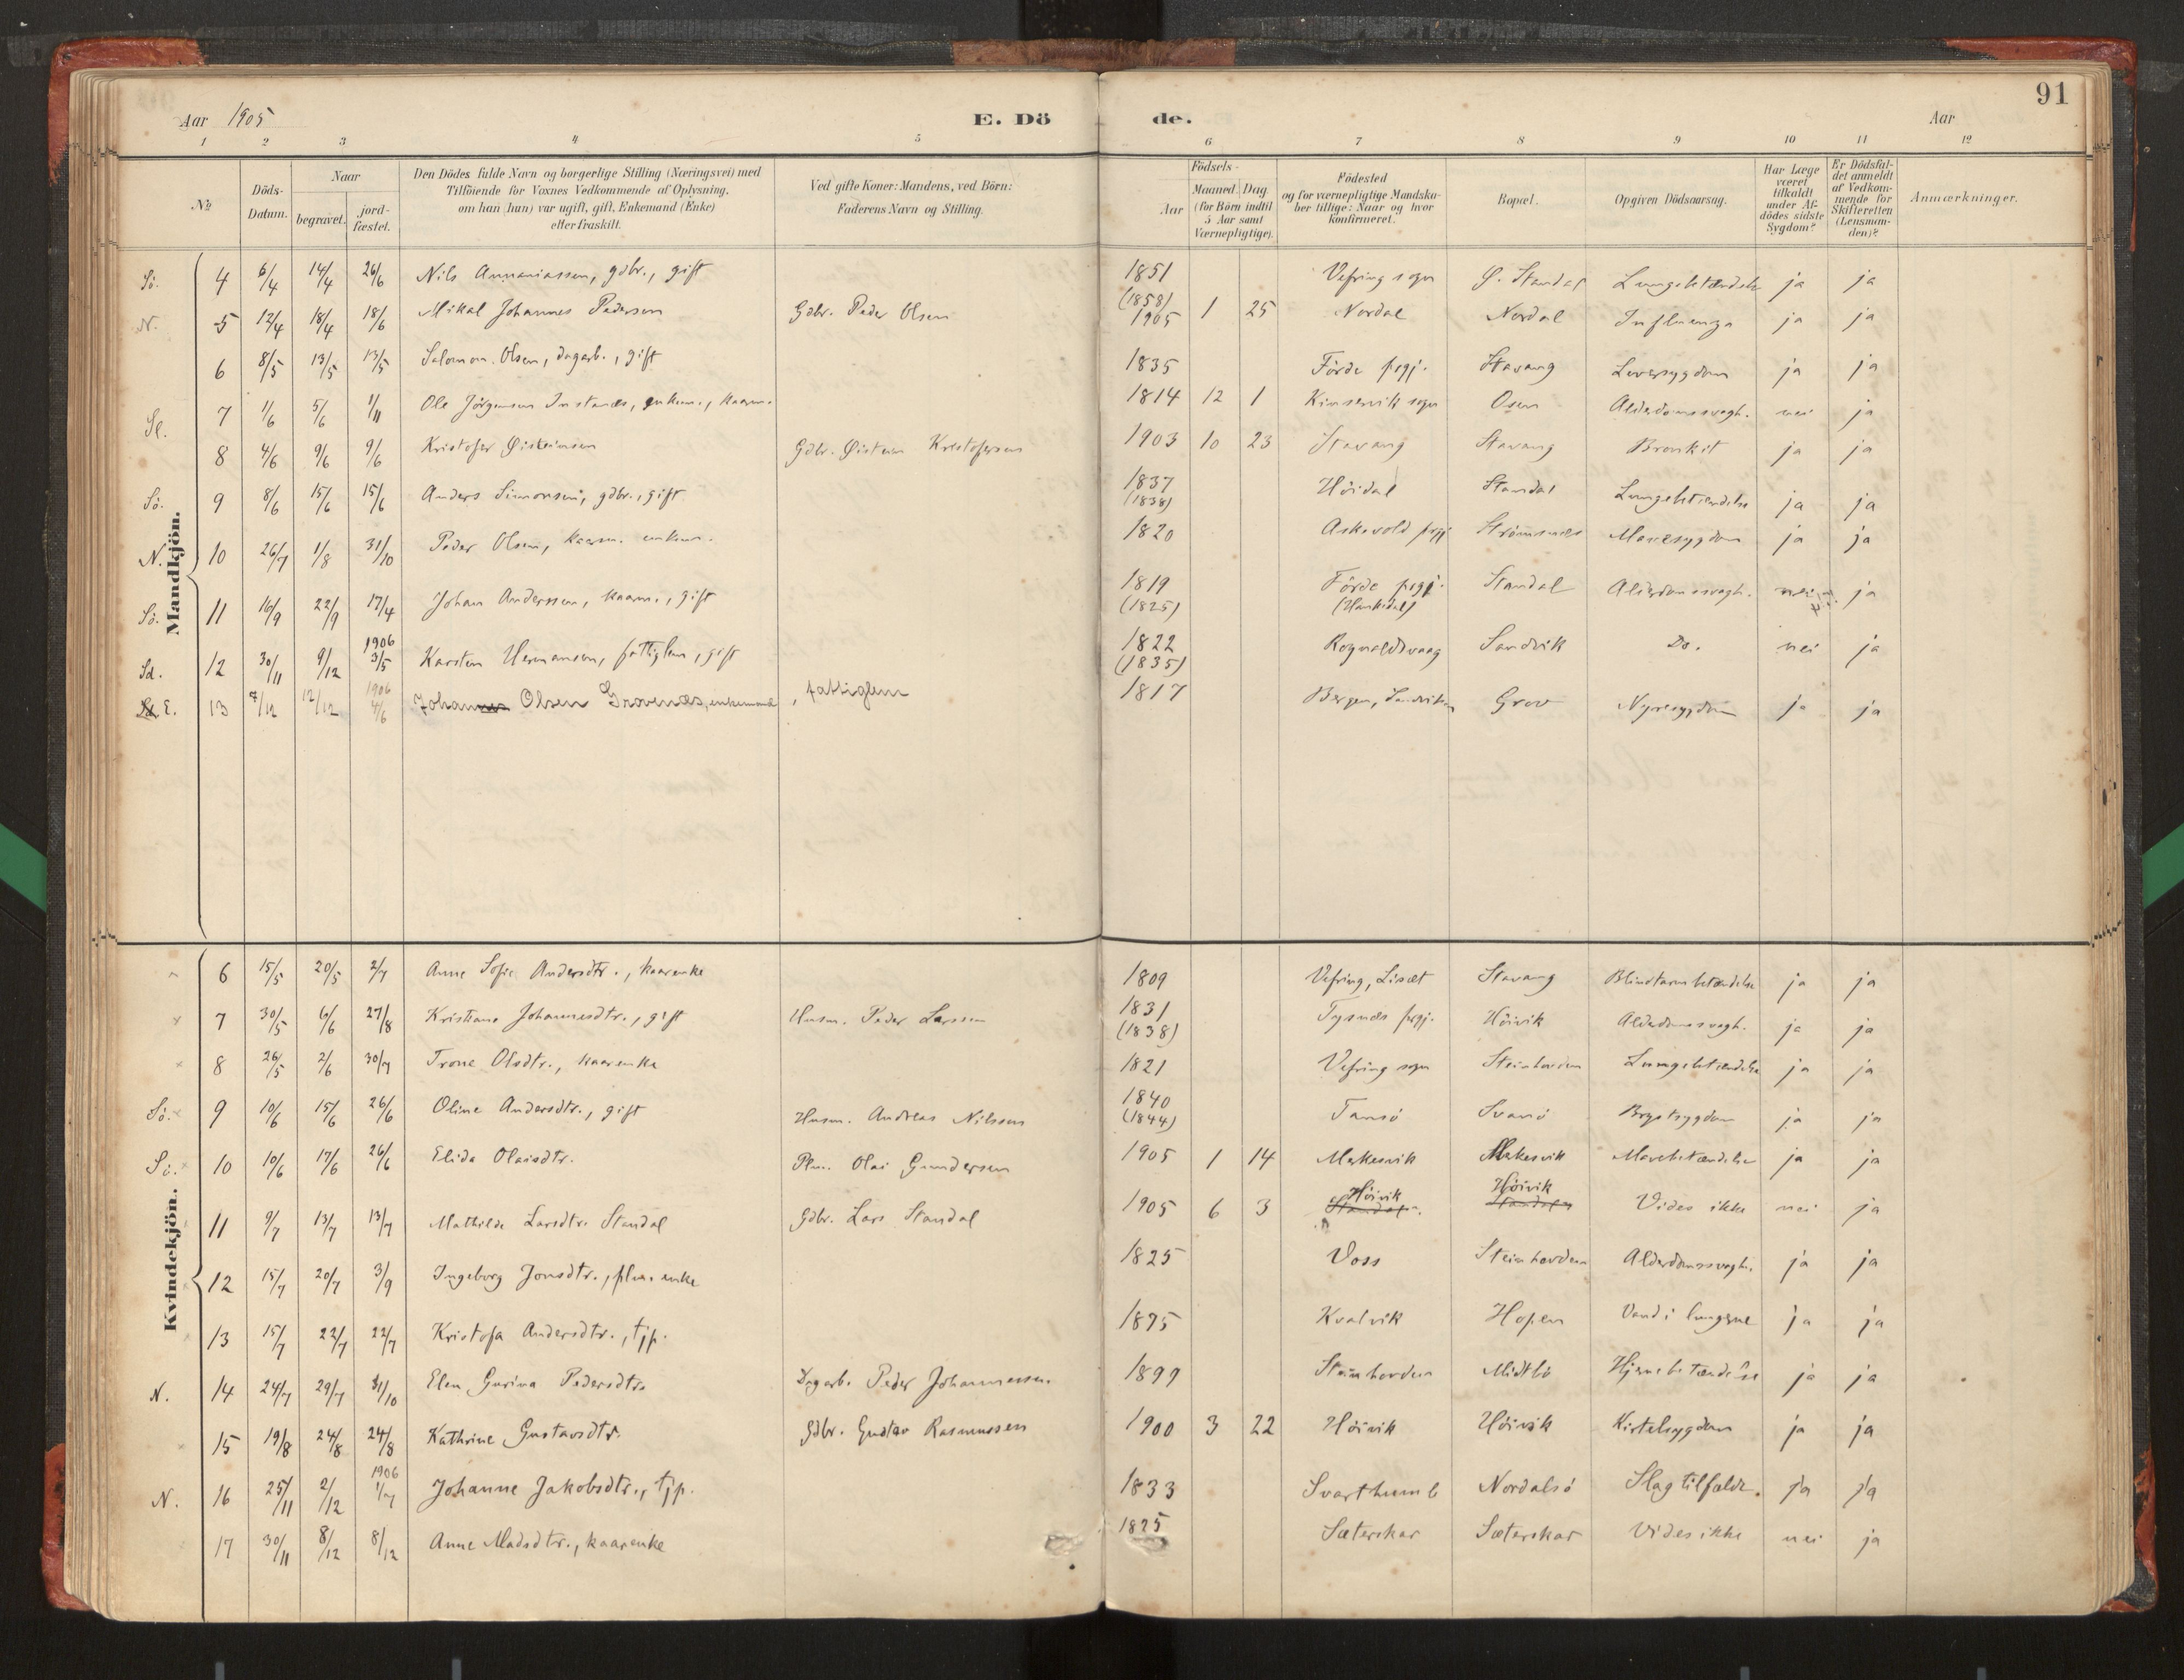 91
Aar 1905 E. Dö de. Aar
1 2 3 4 5 6 7 8 9 10 11 12
No
Döds-Datum.
Naar
begravet.
jord-fæstet.
Den Dödes fulde Navn og borgerlige Stilling (Næringsvei) med
Tilföiende for Voxnes Vedkommende af Oplysning,
om han (hun) var ugift, gift, Enkemand (Enke)
eller fraskilt.
Ved gifte Koner: Mandens, ved Börn:
Faderens Navn og Stilling.
Födsels-
Aar
Maaned. Dag
(for Börn indtil
5 Aar samt
Værnepligtige).
Födested
og for værnepligtige Mandska-
ber tillige: Naar og hvor
konfirmeret.
Bopæl.
Opgiven Dödsaarsag.
Har Læge
været
tilkaldt
under Af-
dödes sidste
Sygdom?
Er Dödsfal-
det anmeldt
af Vedkom-
mende for
Skifteretten
(Lensman-
den)?
Anmærkninger.
Mandkjön.
Sö. 4 6/4 14/4 26/6 Nils Annaniassen, gdbr., gift 1851 (1858) Vefring sogn Ø. Standal Lungebetændelse ja ja
N. 5 12/4 18/4 18/6 Mikal Johannes Pedersen Gdbr. Peder Olsen 1905 1 25 Nordal Nordal Influenza ja ja
6 8/5 13/5 13/5 Salomon Olsen, dagarb., gift 1835 Förde prgj. Stavang Leversygdom ja ja
7 1/6 5/6 1/11 Ole Jörgensen Instenæs, enkem., kaarm. 1814 12 1 Kinservik sogn Osen Alderdomssvagh. nei ja
Sl. 8 4/6 9/6 9/6 Kristofer Øisteinsen Gdbr. Øistein Kristofersen 1903 10 23 Stavang Stavang Bronkit ja ja
Sö. 9 8/6 15/6 15/6 Anders Simonsen, gdbr., gift 1837 (1838) Höidal Standal Lungebetændelse ja ja
N. 10 26/7 1/8 31/10 Peder Olsen, kaarm. enkem. 1820 Askevold prgj Strömsnæs Mavesygdom ja ja
Sö. 11 16/9 22/9 17/4 1906 Johan Anderssen, kaarm., gift 1819 (1825) Förde prgj. Standal Alderdomssvagh. nei ja
Sd. 12 30/11 9/12 3/5 Karsten Hermansen, fattiglem, gift 1822 (1835) Rognaldsvaag Sandvik Do. nei ja
E. 13 7/12 12/12 1906 4/6 Johannes Olsen Grovenæs, enkemand, fattiglem 1817 Bergen, Sandviken Grov Nyresygdom ja ja
Kvindekjön.
6 15/5 20/5 2/7 Anne Sofie Andersdtr., kaarenke 1809 Vefring, Lisæt Stavang Blindtarmbetændelse ja ja
7 30/5 6/6 27/8 Kristiane Johannesdtr., gift Husm. Peder Larssen 1831 (1838) Tysnæs prgj. Höivik Alderdomssvagh. ja ja
8 26/5 2/6 30/7 Trone Olsdtr., kaarenke 1821 Vefring sogn Steinhovden Lungebetændelse ja ja
Sö. 9 10/6 15/6 26/6 Oline Andersdtr., gift Husm. Andreas Nilssen 1840 (1844) Tansö Svanö Brystsygdom ja ja
Sö. 10 10/6 17/6 26/6 Elida Olaisdtr. Plm. Olai Gundersen 1905 1 14 Markesvik Markesvik Mavebetændelse ja ja
11 9/7 13/7 13/7 Mathilde Larsdtr. Standal Gdbr. Lars Standal 1905 6 3 Höivik Standal Höivik Standal Vides ikke nei ja
12 15/7 20/7 3/9 Ingeborg Jonsdtr., plm. enke 1825 Voss Steinhovden Alderdomssvagh. ja ja
13 15/7 22/7 22/7 Kristofa Andersdtr., tjp. 1875 Kvalvik Hopen Vand i lungerne ja ja
N. 14 24/7 29/7 31/10 Elen Gurina Pedersdtr. Dagarb. Peder Johannessen 1899 Steinhovden Midtbö Hjernebetændelse ja ja
15 19/8 24/8 24/8 Kathrine Gustavsdtr. Gdbr. Gustav Rasmussen 1900 3 22 Höivik Höivik Kirtelsygdom ja ja
N. 16 25/11 2/12 1906 1/7 Johanne Jakobsdtr., tjp. 1833 Svarthumle Nordalsö Slagtilfælde ja ja
17 30/11 8/12 8/12 Anne Madsdtr., kaarenke 1825 Sæterskar Sæterskar Vides ikke nei ja